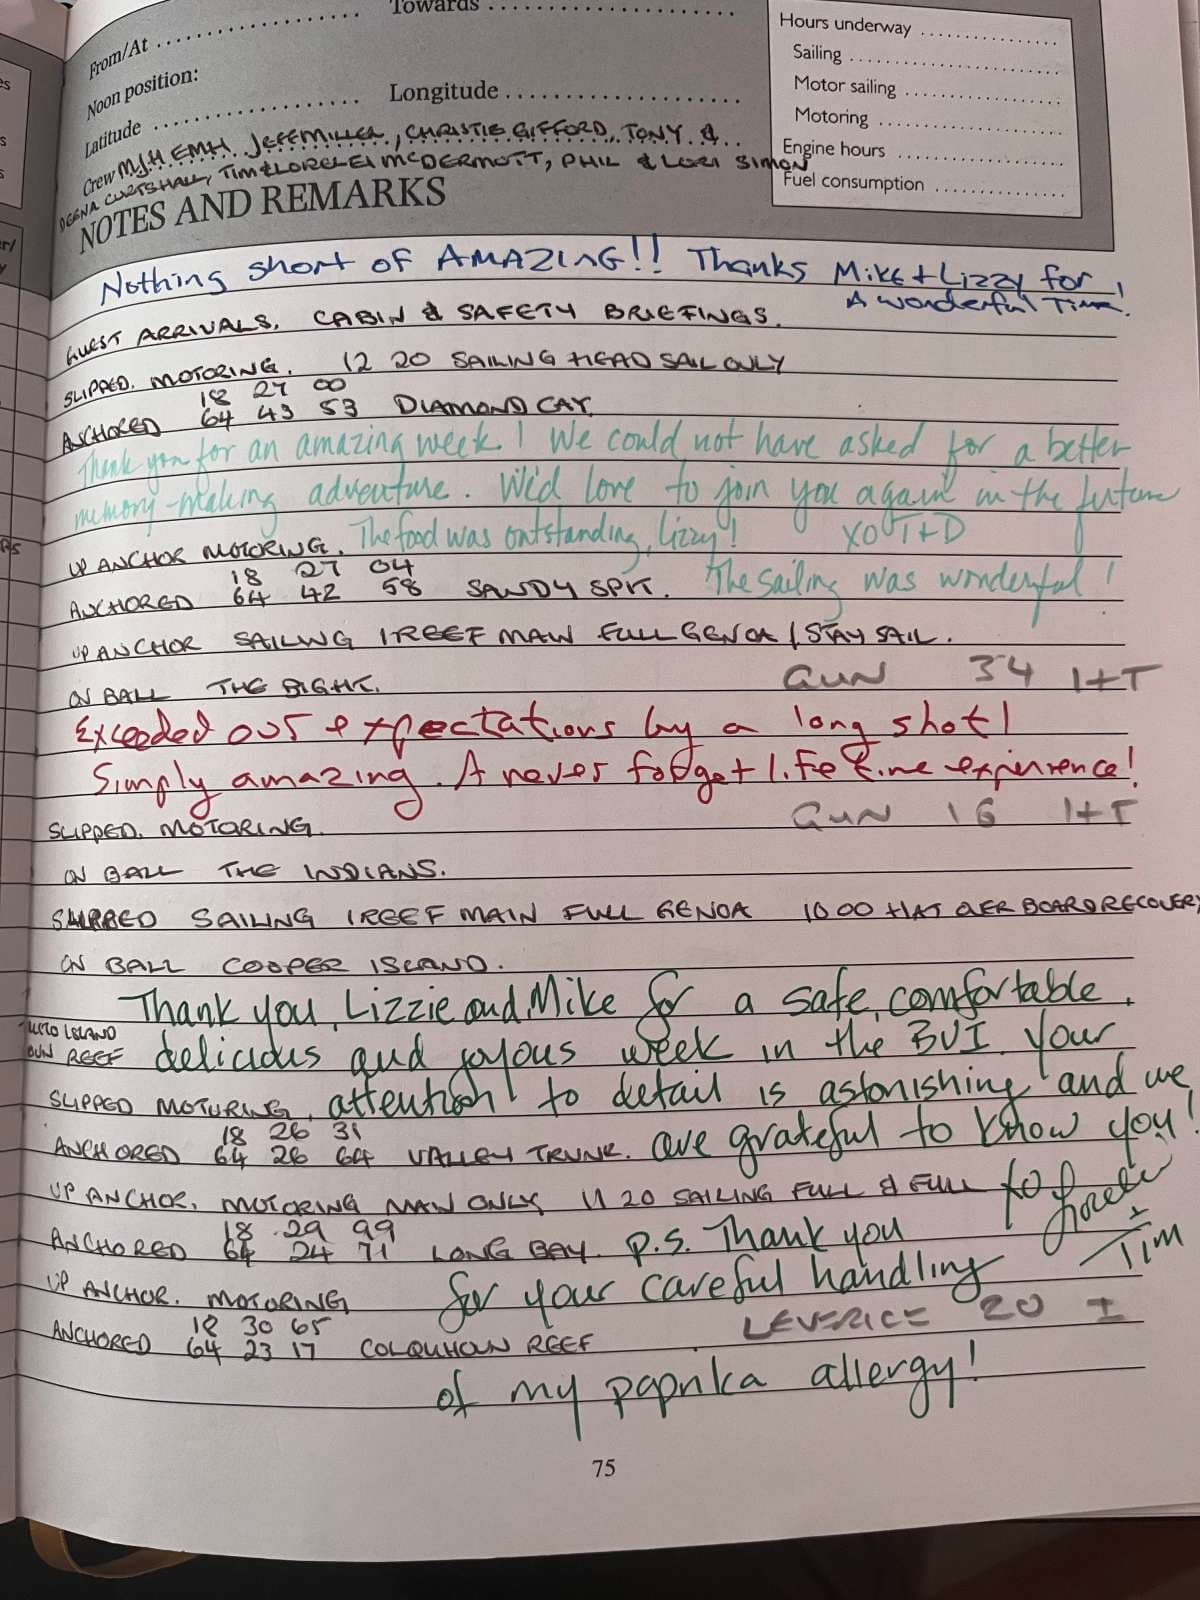 From/At
Towards
Noon position:
Latitude
Longitude
Crew MJH EMH JEFF MILLER, CHRISTIE GIFFORD, TONY &
DEENA CURTSHALL, TIM & LORELEI MCDERMOTT, PHIL & LORI SIMON
Hours underway
Sailing
Motor sailing
Motoring
Engine hours
Fuel consumption
NOTES AND REMARKS
Nothing short of AMAZING!! Thanks Mike + Lizzy for
A wonderful Time!
GUEST ARRIVALS. CABIN & SAFETY BRIEFINGS.
SLIPPED. MOTORING. 12 20 SAILING HEAD SAIL ONLY
18 27 00
ANCHORED 64 43 53 DIAMOND CAY.
Thank you for an amazing week! We could not have asked for a better
memory-making adventure. We'd love to join you again in the future
UP ANCHOR MOTORING. The food was outstanding, Lizzy! XO T+D
18 27 04
ANCHORED 64 42 58 SANDY SPIT. The sailing was wonderful!
UP ANCHOR SAILING 1 REEF MAIN FULL GENOA / STAY SAIL.
ON BALL THE BIGHT. GUN 34 1+T
Exceeded our expectations by a long shot!
Simply amazing. A never forget life time experience!
SLIPPED. MOTORING. GUN 16 1+T
ON BALL THE INDIANS.
SLIPPED SAILING 1 REEF MAIN FULL GENOA 10 00 HAT OVER BOARD RECOVERY
ON BALL COOPER ISLAND.
Thank you, Lizzie and Mike for a safe, comfortable,
ISLAND
REEF delicious and joyous week in the BVI. Your
SLIPPED MOTORING. attention to detail is astonishing and we
18 26 31
ANCHORED 64 26 64 VALLEY TRUNK. are grateful to know you!
UP ANCHOR. MOTORING MAIN ONLY, 11 20 SAILING FULL & FULL xo Lorelei
18 29 99
ANCHORED 64 24 71 LONG BAY. p.s. Thank you + Tim
UP ANCHOR. MOTORING for your careful handling
18 30 65 LEVERICE 20 I
ANCHORED 64 23 17 COLQUHOUN REEF
of my paprika allergy!
75